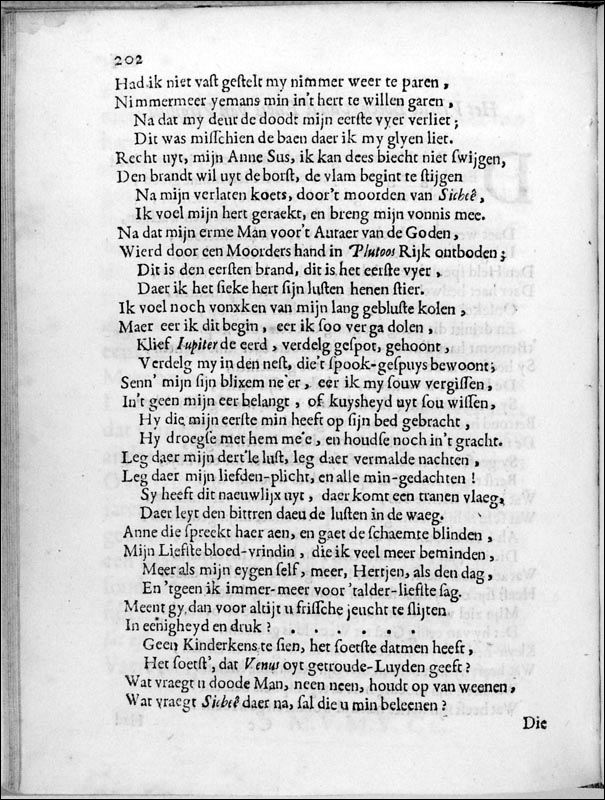 202
Had ik niet vaſt geſtelt my nimmer weer te paren,
Nimmermeer yemans min in't hert te willen garen,
Na dat my deur de doodt mijn eerſte vyer verliet;
Dit was miſſchien de baen daer ik my glyen liet.
Recht uyt, mijn Anne Sus, ik kan dees biecht niet ſwijgen,
Den brandt wil uyt de borſt, de vlam begint te ſtijgen
Na mijn verlaten koets, door't moorden van Sicheê,
Ik voel mijn hert geraekt, en breng mijn vonnis mee.
Na dat mijn erme Man voor't Autaer van de Goden,
Wierd door een Moorders hand in Plutoos Rijk ontboden;
Dit is den eerſten brand, dit is het eerſte vyer,
Daer ik het ſieke hert ſijn luſten henen ſtier.
Ik voel noch vonxken van mijn lang gebluſte kolen,
Maer eer ik dit begin, eer ik ſoo verga dolen,
Klief Iupiter de eerd, verdelg geſpot, gehoont,
Verdelg my in den neſt, die't ſpook-geſpuys bewoont;
Senn' mijn ſijn blixem ne'er, eer ik my ſouw vergiſſen,
In't geen mijn eer belangt, of kuysheyd uyt ſou wiſſen,
Hy die mijn eerſte min heeft op ſijn bed gebracht,
Hy droegſe met hem me'e, en houdſe noch in't gracht.
Leg daer mijn dert'le luſt, leg daer vermalde nachten,
Leg daer mijn liefden-plicht, en alle min-gedachten!
Sy heeft dit naeuwlijx uyt, daer komt een tranen vlaeg,
Daer leyt den bittren daeu de luſten in de waeg.
Anne die ſpreekt haer aen, en gaet de ſchaemte blinden,
Mijn Liefſte bloed-vrindin, die ik veel meer beminden,
Meer als mijn eygen ſelf, meer, Hertjen, als den dag,
En 'tgeen ik immer-meer voor 'talder-liefſte ſag.
Meent gy dan voor altijt u friſſche jeucht te ſlijten
In eenigheyd en druk? . . . . . .
Geen Kinderkens te ſien, het ſoetſte datmen heeft,
Het ſoetſt', dat Venus oyt getroude-Luyden geeft?
Wat vraegt u doode Man, neen neen, houdt op van weenen,
Wat vraegt Sicheê daer na, ſal die u min beleenen?
Die